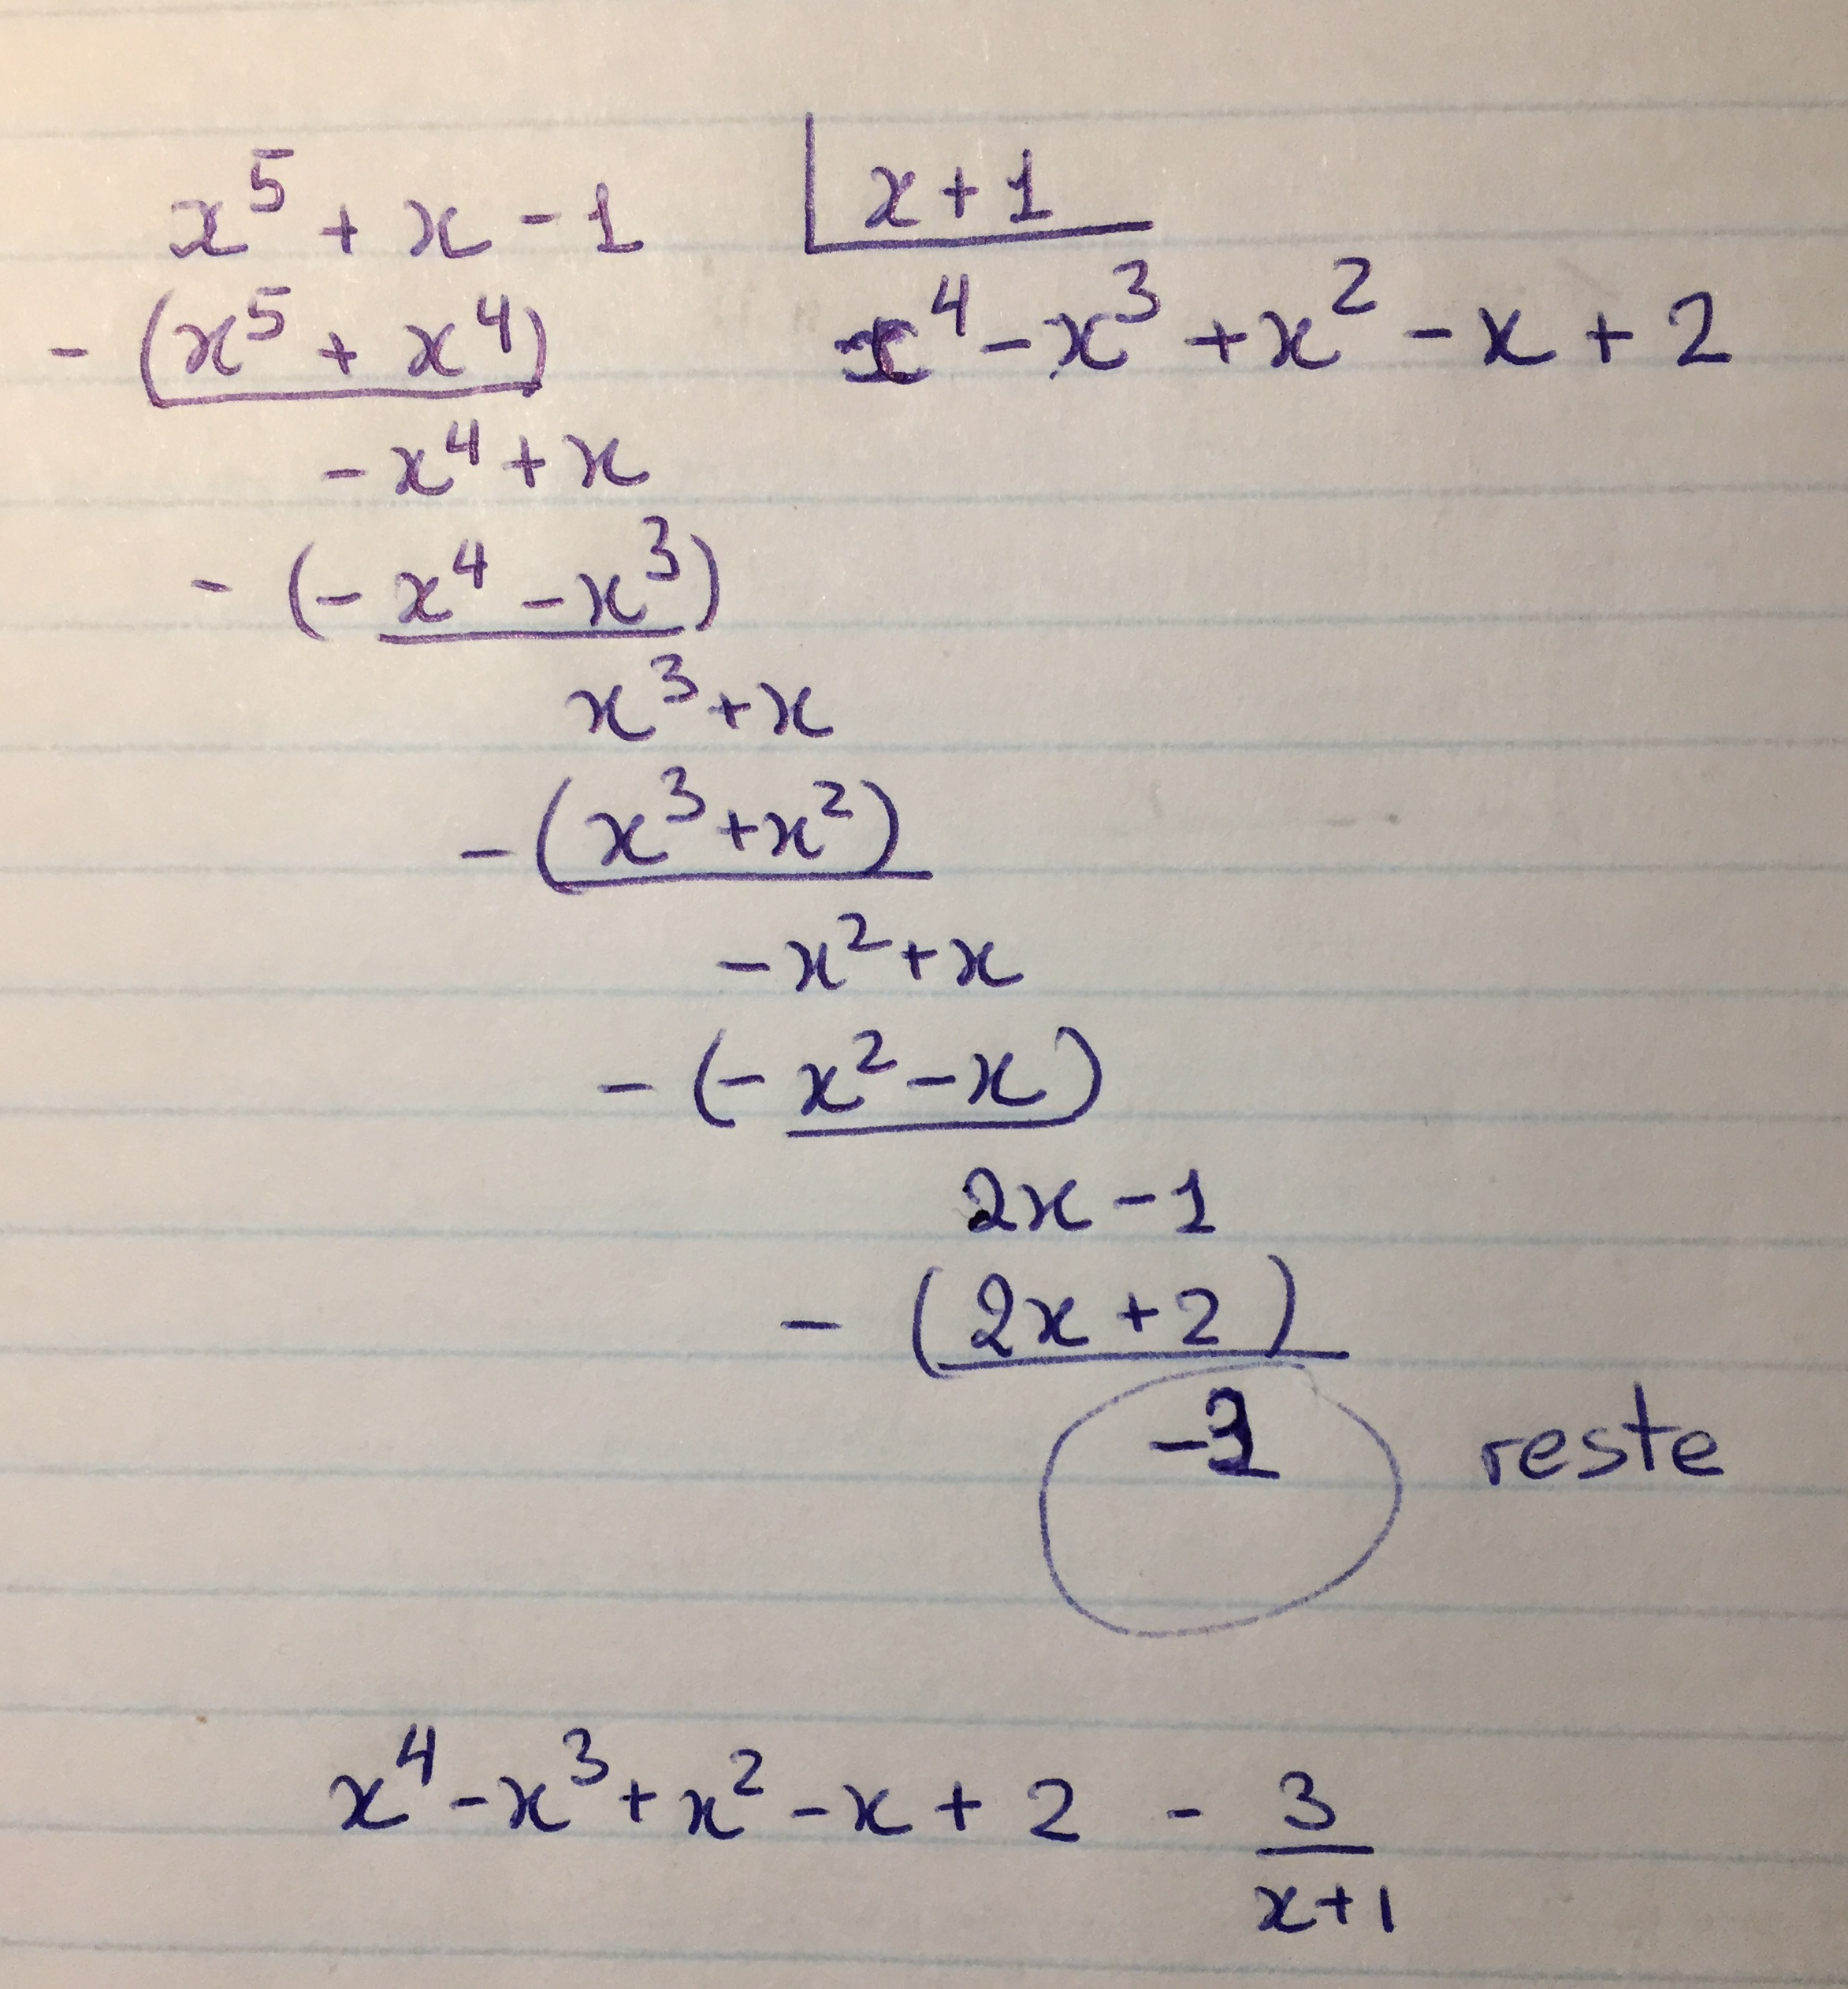 x⁵ + x - 1 | x + 1
- (x⁵ + x⁴) x⁴ - x³ + x² - x + 2
- x⁴ + x
- (- x⁴ - x³)
x³ + x
- (x³ + x²)
- x² + x
- (- x² - x)
2x - 1
- (2x + 2)
-3 reste
x⁴ - x³ + x² - x + 2 - 3/(x+1)